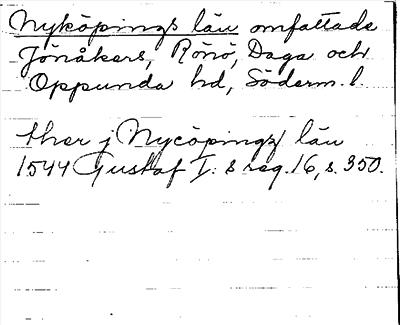 Nyköpings län omfattade
Jönåkers, Rönö, Daga och
Oppunda hd, Söderm. l.
ther j Nycöpings län
1544 Gustaf I:s reg. 16, s. 350.